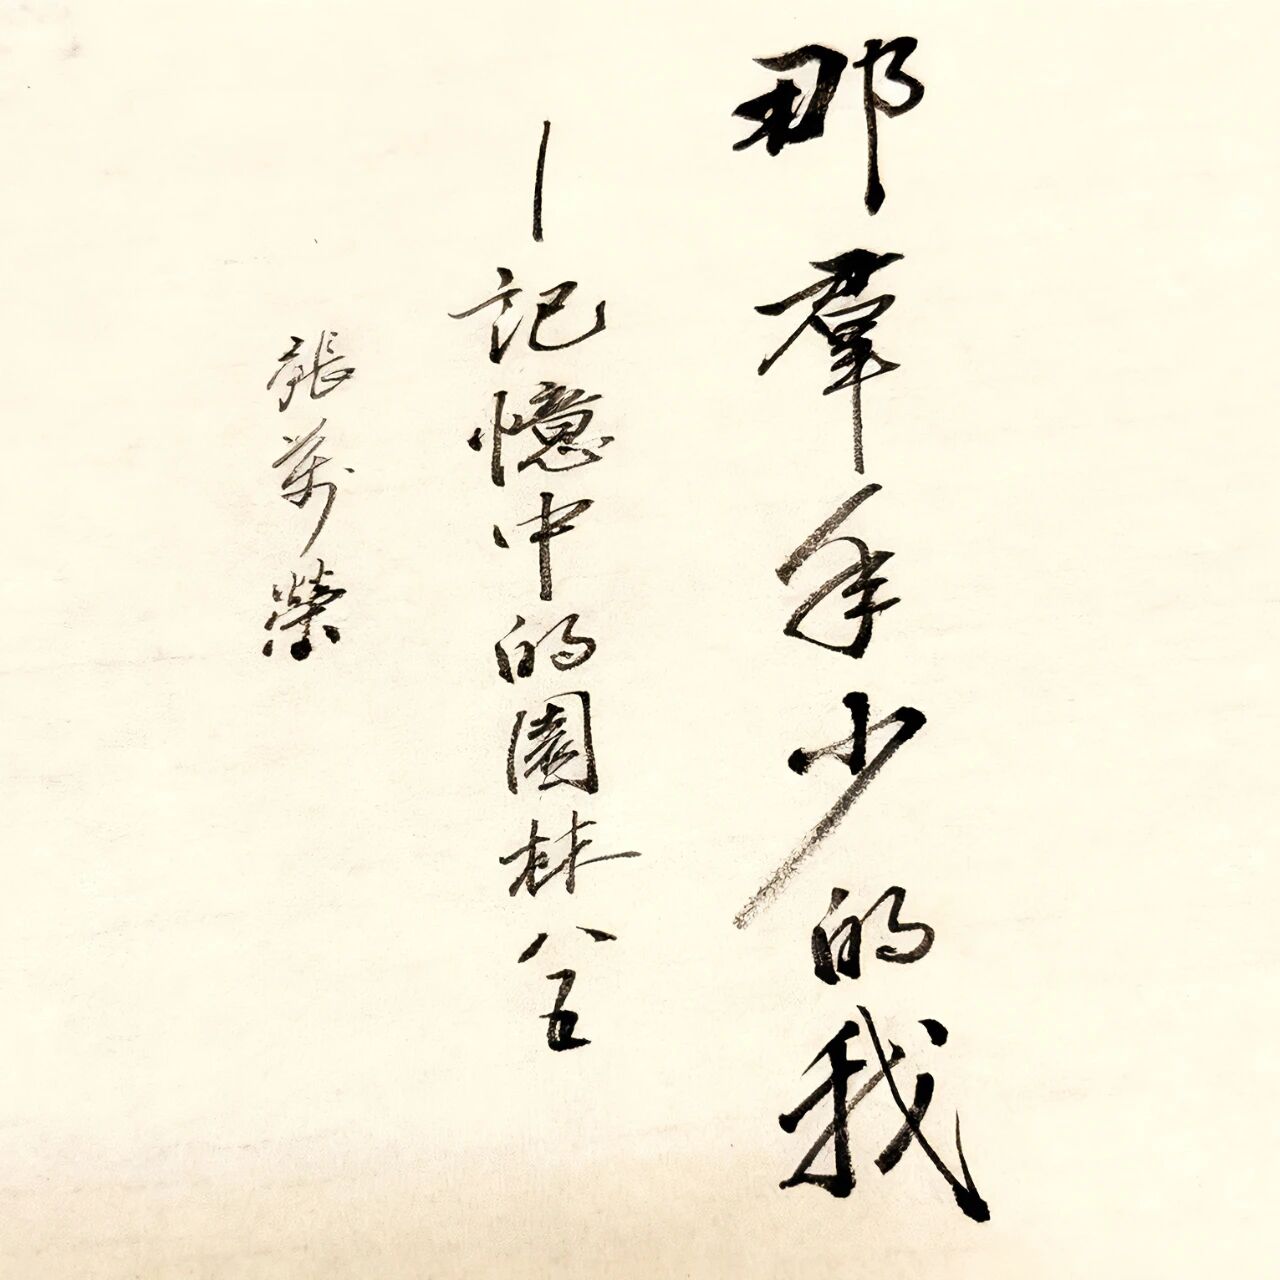 那羣年少的我
—記憶中的園林八五
張萬榮